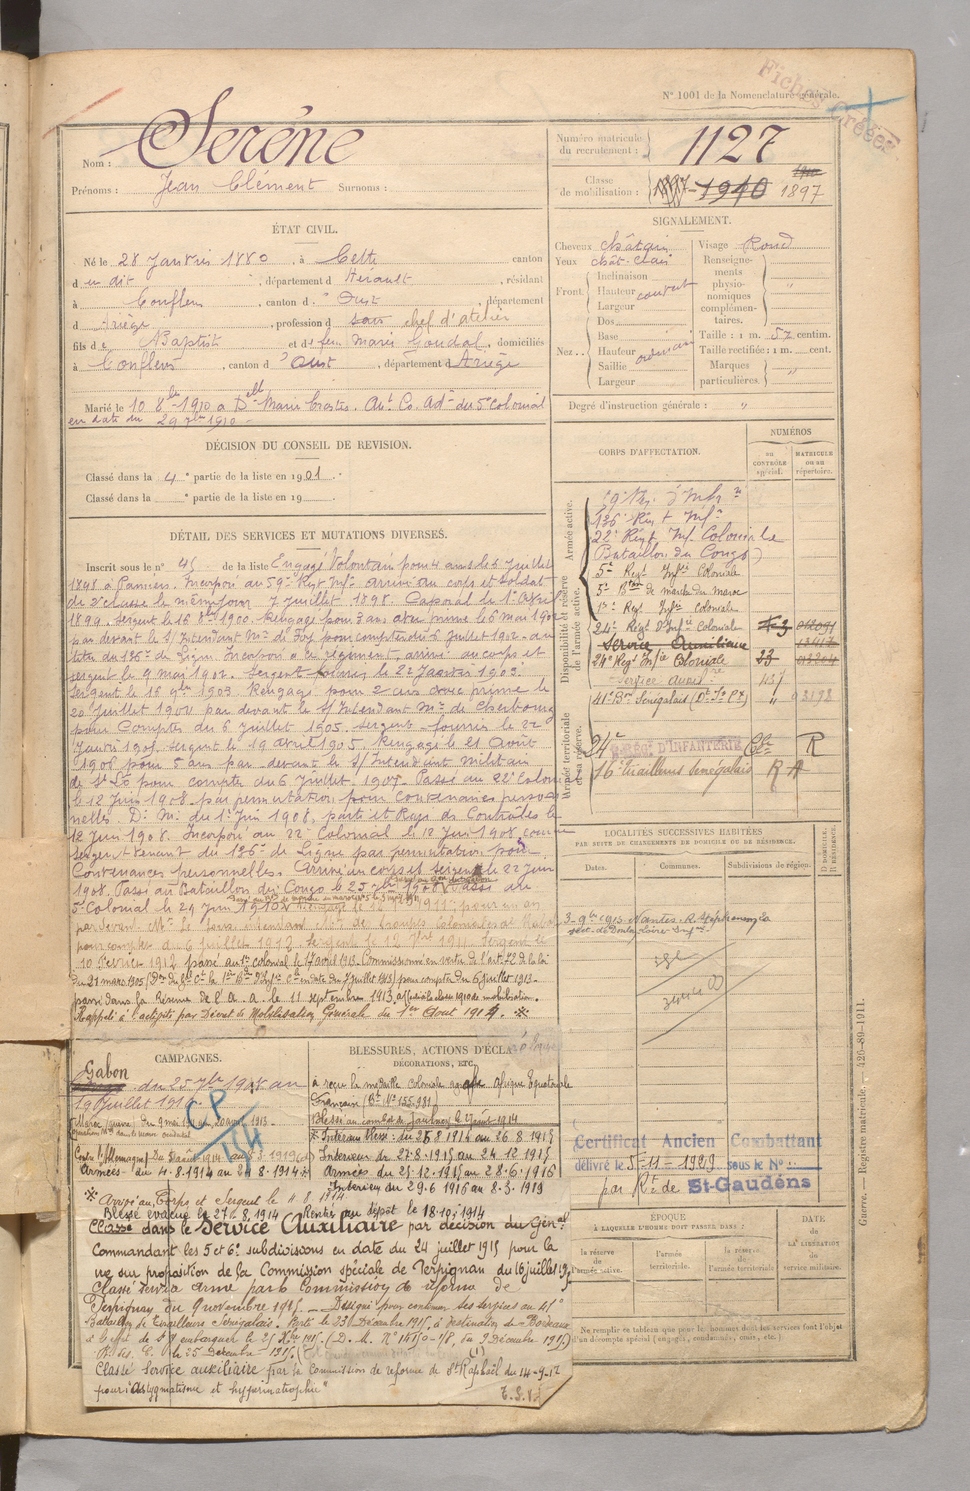 Fiches Créées
N° 1001 de la Nomenclature générale.
Nom : Seréne
Prénoms : Jean Clément Surnoms :
Numéro matricule du recrutement : 1127
Classe de mobilisation : 1910 1897
ÉTAT CIVIL.
Né le 28 Janvier 1880, à Cette canton
d u dit, département d Hérault, résidant
à Conflens, canton d Oust, département
d Ariège, profession d sans chef d'atelier
fils d e Baptiste et d e feu Marie Goudal, domiciliés
à Conflens, canton d Oust, département d Ariège
Marié le 10 8bre 1910 à Delle Marie Crastes. Aut. Co. Adon du 5e Colonial
en date du 29 7bre 1910
SIGNALEMENT.
Cheveux châtain
Yeux chât. clair
Front. Inclinaison
Hauteur couvert
Largeur
Nez. Dos
Base
Hauteur ordinaire
Saillie
Largeur
Visage Rond
Renseignements physionomiques complémentaires. "
Taille : 1 m. 57 centim.
Taille rectifiée : 1 m. cent.
Marques particulières. "
Degré d'instruction générale : "
DÉCISION DU CONSEIL DE REVISION.
Classé dans la 4e partie de la liste en 1901.
Classé dans la e partie de la liste en 19
DÉTAIL DES SERVICES ET MUTATIONS DIVERSES.
Inscrit sous le n° 45 de la liste Engagé Volontaire pour 4 ans le 6 Juillet
1898 à Pamiers. Incorporé au 59e Régt Infie arrivé au corps et soldat
de 2e classe le même jour 7 juillet 1898. Caporal le 1er Avril
1899. Sergent le 16 8bre 1900. Rengagé pour 3 ans avec prime le 6 mai 1902
par devant le S/Intendant Mre de Foix pour compter du 6 Juillet 1902 au
titre du 136e de Ligne. Incorporé à ce régiment arrivé au corps et
sergent le 9 mai 1902. Sergent fourrier le 22 Janvier 1903.
Sergent le 16 9bre 1903. Rengagé pour 2 ans avec prime le
20 Juillet 1904 par devant le S/Intendant Mre de Cherbourg
pour compter du 6 Juillet 1905. Sergent fourrier le 22
Janvier 1905. Sergent le 19 avril 1905. Rengagé le 21 Août
1906 pour 5 ans par devant le S/Intendant militaire
de St Lô pour compter du 6 Juillet 1907. Passé au 22e Colonial
le 12 Juin 1908 par permutation pour Convenances personnelles.
D. M. du 1er Juin 1908, parti et Rayé des Contrôles le
12 Juin 1908. Incorporé au 22e Colonial le 12 Juin 1908 comme
sergent venant du 136e de Ligne par permutation pour
Convenances personnelles. Arrivé au corps et sergent le 22 Juin
1908. Passé au Bataillon du Congo le 25 7bre 1908. Passé au
5e Colonial le 29 Juin 1910. Rengagé le 1911 pour un an
par devant Mr le Sous Intendant Mre des troupes Coloniales de Rabat
pour compter du 6 juillet 1912. Sergent le
10 Février 1912 passé au 1er colonial le 17 avril 1913. Commissionné en vertu de l'art. 22 de la loi
du 21 mars 1905 en date du 7 juillet 1913 pour compter du 6 juillet 1913.
passé dans la Réserve de l'A. a. le 11 septembre 1913, affecté à la classe 1910 de mobilisation.
Rappelé à l'activité par Décret de Mobilisation Générale du 1er Août 1914. ※
CORPS D'AFFECTATION.
NUMÉROS
au CONTRÔLE spécial.
MATRICULE ou au répertoire.
Disponibilité et réserve de l'armée active.
Armée active.
59e Rég. d'Infie
136e Régt Infie
22e Régt Infie Coloniale
(Bataillon du Congo)
5e Régt Infie Coloniale
5e Bon de marche du Maroc
1er Régt Infie Coloniale
24e Régt d'Infie Coloniale
Service Auxiliaire
24e Régt Infie Coloniale 33
Service auxilre 437
41e Bon Sénégalais (Dt So Po) " 03192
Armée territoriale et sa réserve.
24e RÉG. D'INFANTERIE Cle R
16e tirailleurs Sénégalais R A
LOCALITÉS SUCCESSIVES HABITÉES
PAR SUITE DE CHANGEMENTS DE DOMICILE OU DE RÉSIDENCE.
Dates. Communes. Subdivisions de région. D. DOMICILE R. RÉSIDENCE.
3 9bre 1913 Nantes. R. Stéphenson 7 a
CAMPAGNES.
Gabon
du 25 7bre 1908 au
19 Juillet 1910
Maroc guerre, du 9 mai 1911 au 20 avril 1913
Contre l'Allemagne
Armées du 4.8.1914 au 28.8.1914
CP
BLESSURES, ACTIONS D'ÉCLAT
DÉCORATIONS, ETC.
a reçu la médaille coloniale agrafe Afrique Equatoriale
Française (Bt No 155.981)
Blessé au combat de Jaulnay le 27 août 1914
※ Intérieur Blessé : du 28 8 1914 au 26 8 1915
Intérieur du 27.8.1915 au 24 12 1915
Armées du 25.12.1915 au 28.6.1916
Intérieur du 29.6 1916 au 8.3.1919
Certificat Ancien Combattant
délivré le 5-11-1929 sous le N°
par Rt de St-Gaudens
ÉPOQUE
À LAQUELLE L'HOMME DOIT PASSER DANS :
la réserve de l'armée active.
l'armée territoriale.
la réserve de l'armée territoriale.
DATE de LA LIBÉRATION du service militaire.
Ne remplir ce tableau que pour les hommes dont les services font l'objet
d'un décompte spécial (engagés, condamnés, omis, etc.).
※ Arrivé au Corps et Sergent le 11 8 1914
Blessé évacué le 27.8.1914 Rentré au dépôt le 18.10.1914
Classé dans le Service Auxiliaire par décision du Général
Commandant les 5 et 6e subdivisions en date du 24 juillet 1915 pour la
vue sur proposition de la Commission spéciale de Perpignan du 16 juillet 1915
Classé service armé par la Commission de réforme de
Perpignan du 9 novembre 1915. Désigné pour continuer ses services au 41e
Bataillon de Tirailleurs Sénégalais. Parti le 23 Décembre 1915, à destination de Bordeaux
à l'effet de s'y embarquer le 25 Xbre 1915. (D. M. No 14150-1/8, du 9 Décembre 1915)
R. des C. le 25 Décembre 1915.
Classé Service auxiliaire par la Commission de réforme de St Raphaël du 14-9-17
pour "Astygmatisme et hypermétrophie"
T.S.V.P.
Guerre. — Registre matricule. — 426-89-1911.